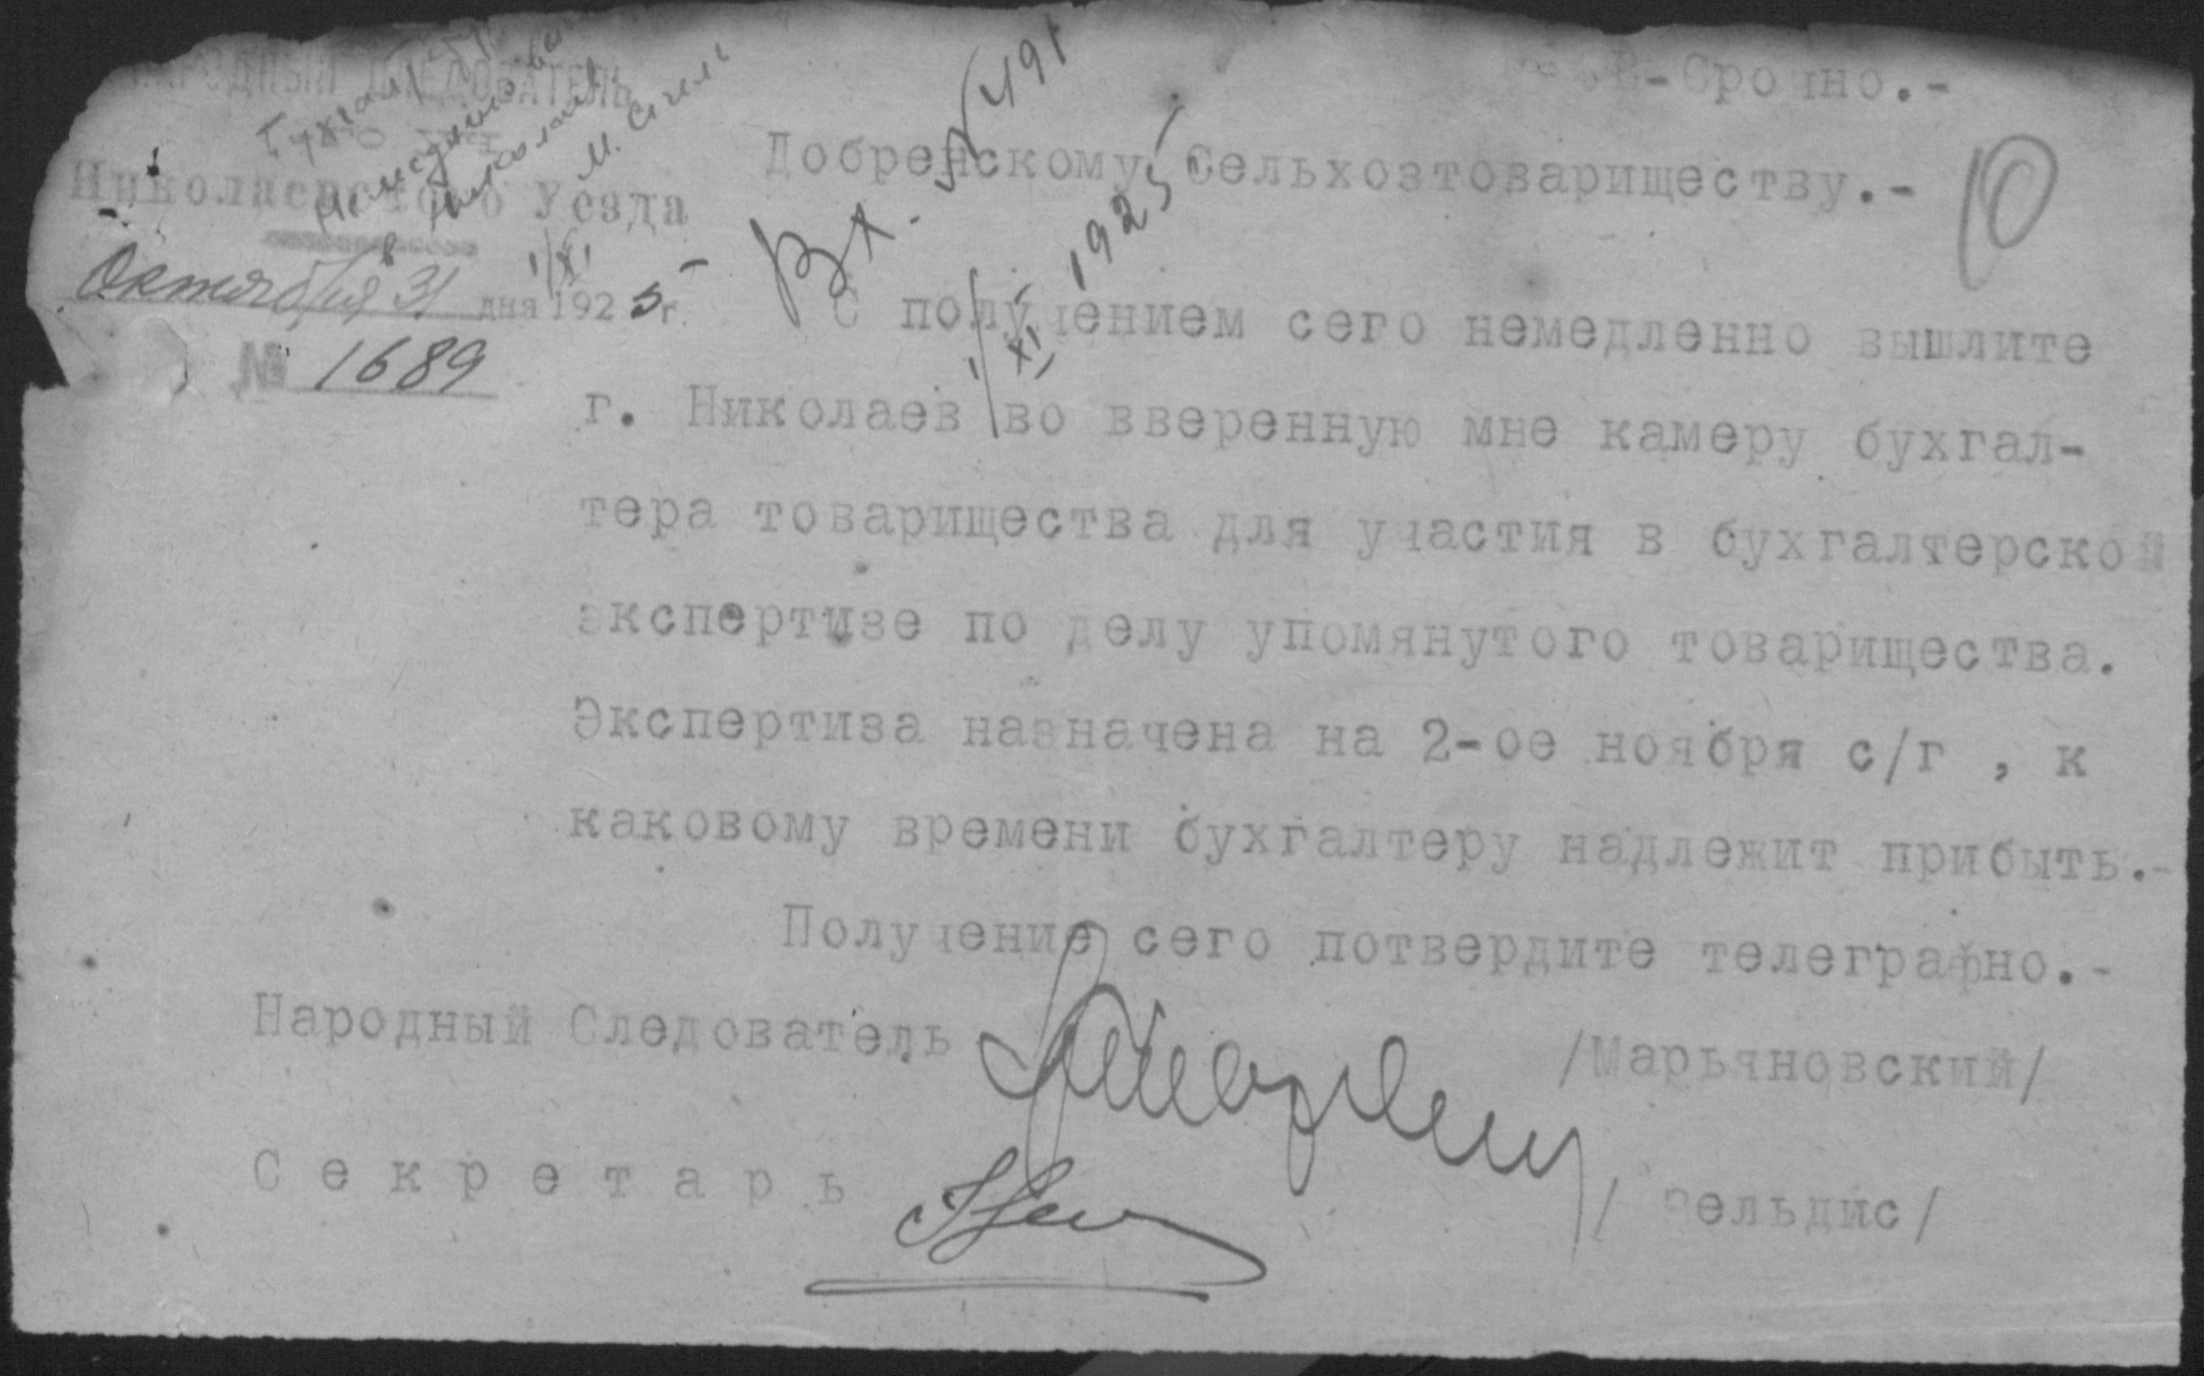 НАРОДНЫЙ СЛЕДОВАТЕЛЬ
Николаевского Уезда
Октября 31 дня 1925 г.
№ 1689
немедленно
в Николаев
1/XI
Вх. № 491
1/XI 1925
В-Срочно.-
Добренскому Сельхозтовариществу.-
10
С получением сего немедленно вышлите
г. Николаев во вверенную мне камеру бухгал-
тера товарищества для участия в бухгалтерской
экспертизе по делу упомянутого товарищества.
Экспертиза назначена на 2-ое ноября с/г , к
каковому времени бухгалтеру надлежит прибыть.-
Получение сего потвердите телеграфно.-
Народный Следователь /Марьяновский/
Секретарь /Зельдис/